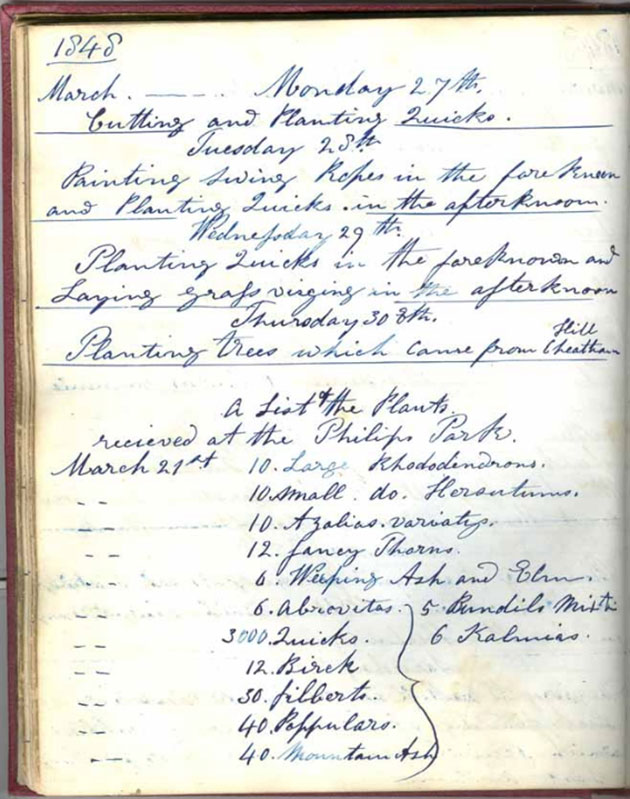 1848
March. — — — . Monday 27th.
Cutting and Planting Quicks.
Tuesday 28th
Painting Swing Ropes in the foreknoon
and Planting Quicks. in the afterknoon.
Wednesday 29th.
Planting Quicks in the foreknown and
Laying grass virging in the afterknoon
Thursday 30th.
Planting trees which came from Cheatham Hill
A List of the Plants
recieved at the Philips Park.
March 21st 10. Large Rhododendrons.
-- 10. Small. do. Hersutums.
-- 10. Azalias.
-- 12. fancy Thorns.
6. Weeping Ash and Elm.
-- 6. Abrovitas. 5. Bundils Mixt
-- 3000. Quicks. 6 Kalmias.
-- 12. Birck
-- 30. filberts.
-- 40. Poppulars.
-- 40. Mountain Ash